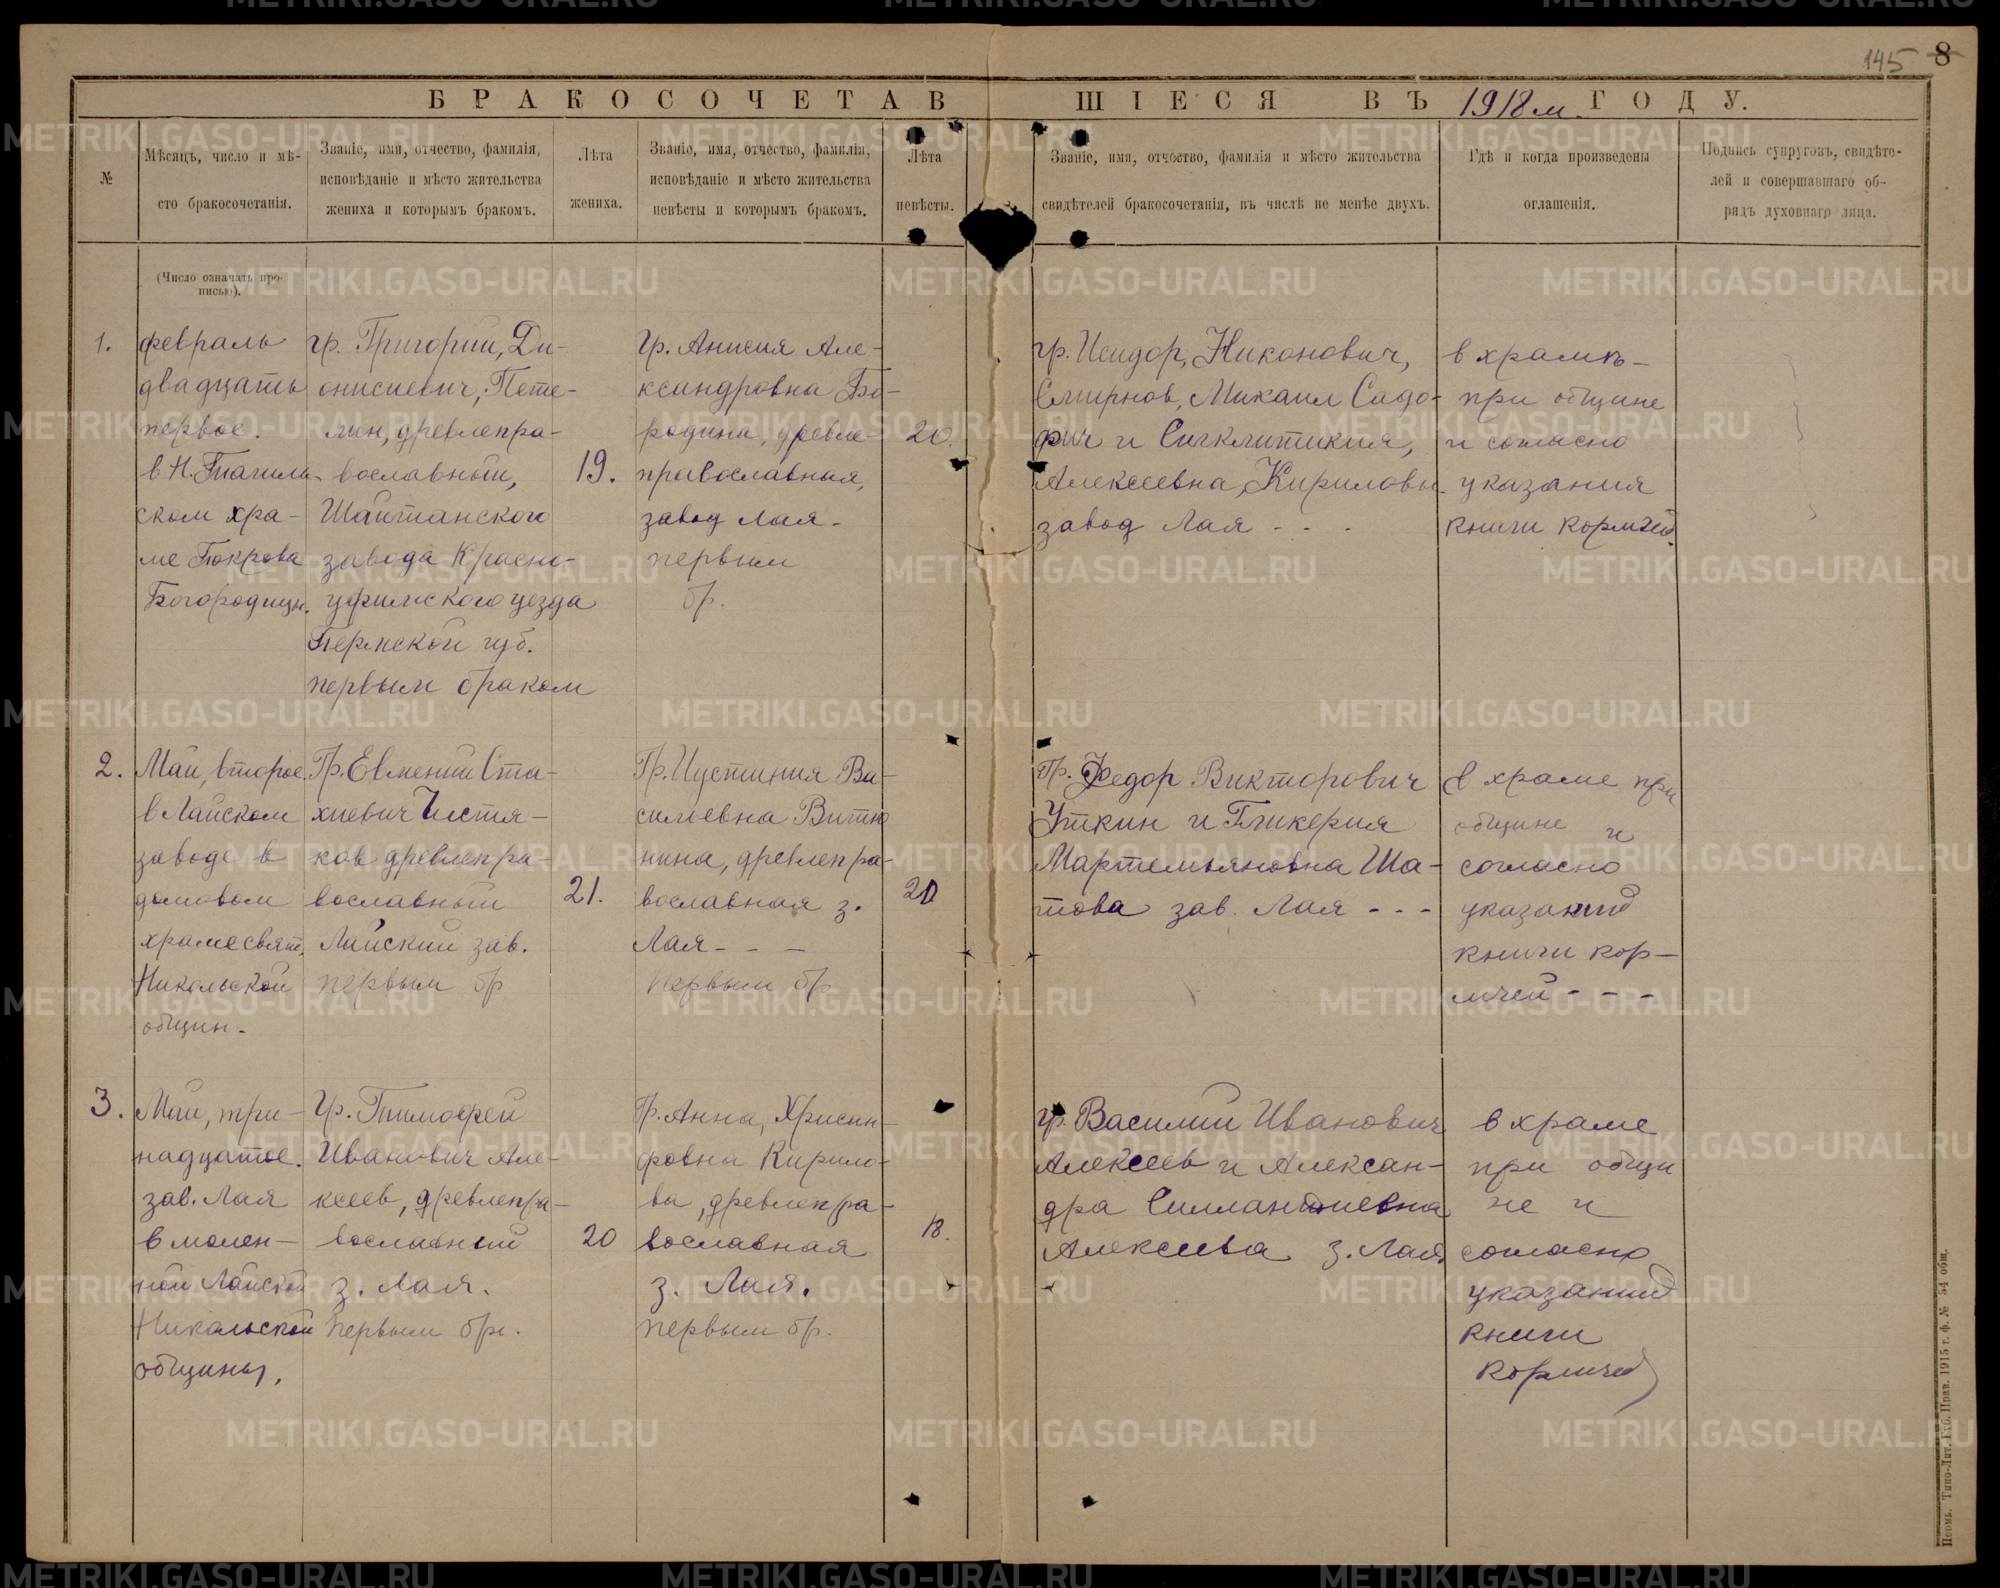 145 8
БРАКОСОЧЕТАВШІЕСЯ ВЪ 1918м. ГОДУ.
№
Мѣсяцъ, число и мѣ-
сто бракосочетанія.
Званіе, имя, отчество, фамилія,
исповѣданіе и мѣсто жительства
жениха и которымъ бракомъ.
Лѣта
жениха.
Званіе, имя, отчество, фамилія,
исповѣданіе и мѣсто жительства
невѣсты и которымъ бракомъ.
Лѣта
невѣсты.
Званіе, имя, отчество, фамилія и мѣсто жительства
свидѣтелей бракосочетанія, въ числѣ не менѣе двухъ.
Гдѣ и когда произведены
оглашенія.
Подпись супруговъ, свидѣте-
лей и совершавшаго об-
рядъ духовнаго лица.
(Число означать про-
писью).
1.
февраль
двадцать
первое.
в Н. Тагиль-
ском хра-
ме Покрова
Богородицы.
гр. Григорий, Ди-
онисиевич, Поте-
лин, древлепра-
вославный,
Шайтанского
завода Красно-
уфимского уезда
Пермской губ.
первым браком
19.
Гр. Анисия Але-
ксандровна Бо-
родина, древле-
православная,
завод Лая.
первым
бр.
20.
гр. Исидор, Никонович,
Смирнов, Михаил Сидо-
рич и Синклитикия,
Алексеевна, Кириловы
завод Лая - - -
в храмъ-
при общине
и согласно
указания
книги кормчей.
2.
Май, второе.
в Лайском
заводе в
домовом
храме свят.
Никольской
общин.
Гр. Евмений Ста-
хиевич Чистя-
ков древлепра-
вославный
Лайский зав.
первым бр
21.
Гр. Иустиния Ва-
силиевна Витю
нина, древлепра-
вославная з.
Лая - - -
первым бр.
20
Гр. Федор Викторович
Уткин и Гликерия
Мартемьяновна Ша-
това зав. Лая - - -
в храме при
общине и
согласно
указаний
книги кор-
мчей - - -
3.
Май, три-
надцатое.
зав. Лая
в молен-
ной Лайской
Никольской
общины,
Гр. Тимофей
Иванович Але-
ксеев, древлепра-
вославный
з. Лая.
первым бр.
20
Гр. Анна, Хрисан-
фовна Кирило-
ва, древлепра-
вославная
з. Лая.
первым бр.
18.
гр. Василий Иванович
Алексеев и Алексан-
дра Силлантиевна
Алексеева з. Лая
в храме
при общи
не и
согласно
указаний
книги
кормчей
Пермь. Типо-Лит. Губ. Прав. 1915 г. ф. № 54 общ.
METRIKI.GASO-URAL.RU